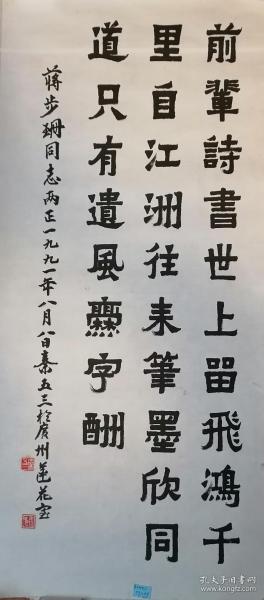 前輩詩書世上留飛鴻千
里自江洲往来筆墨欣同
道只有遺風爨字酬
蒋步珊同志两正一九九一年八月八日秦五三於廣州蓮花室
孔夫子旧书网